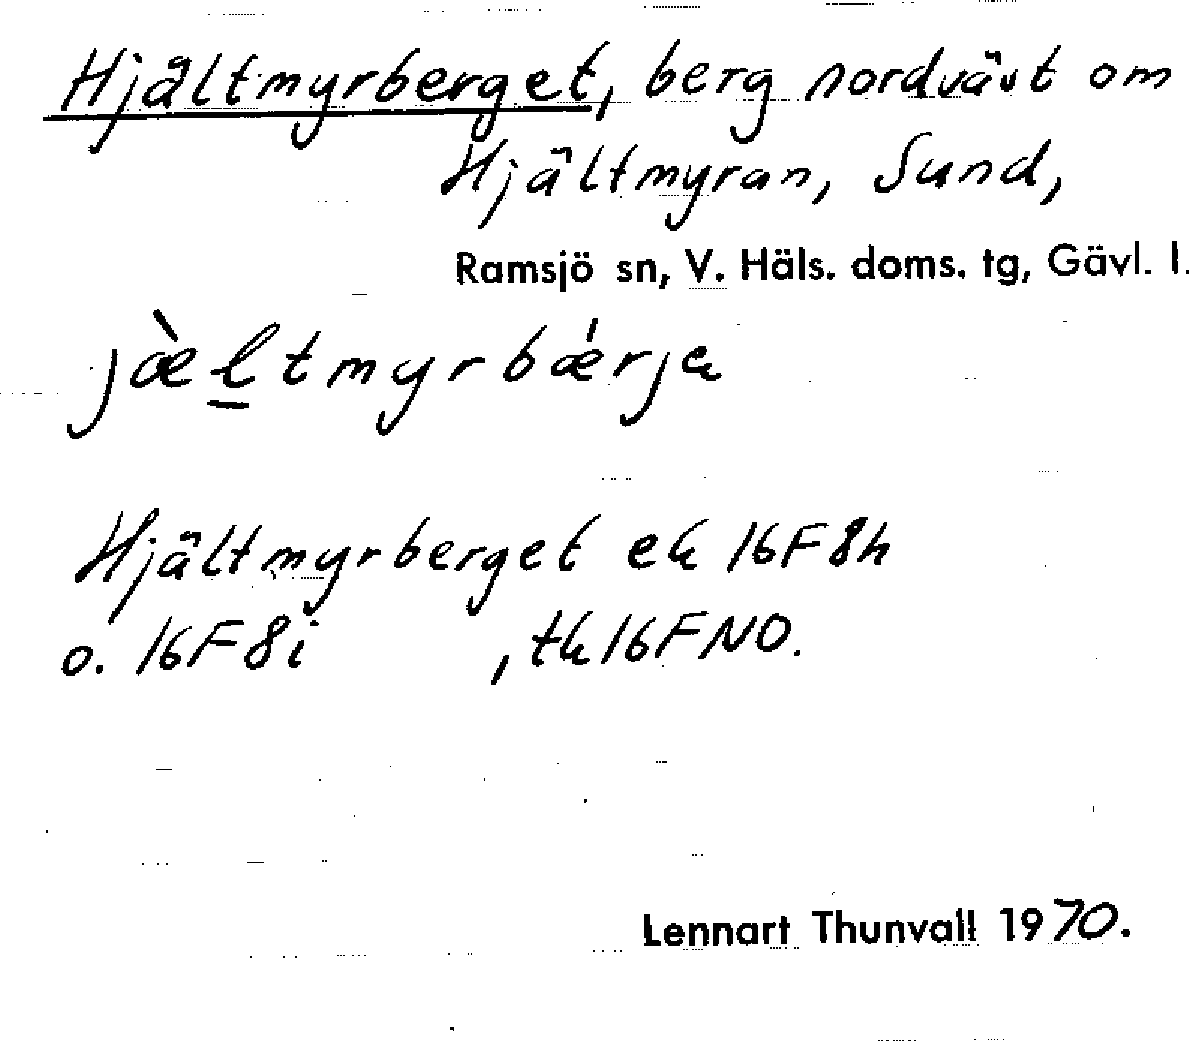 Hjältmyrberget, berg nordväst om
Hjältmyran, Sund,
Ramsjö sn, V. Häls. doms. tg, Gävl. l.
jæ̀ltmyrbǽrja
Hjältmyrberget ek 16F8h
o. 16F8i , tk 16FNO.
Lennart Thunvall 1970.